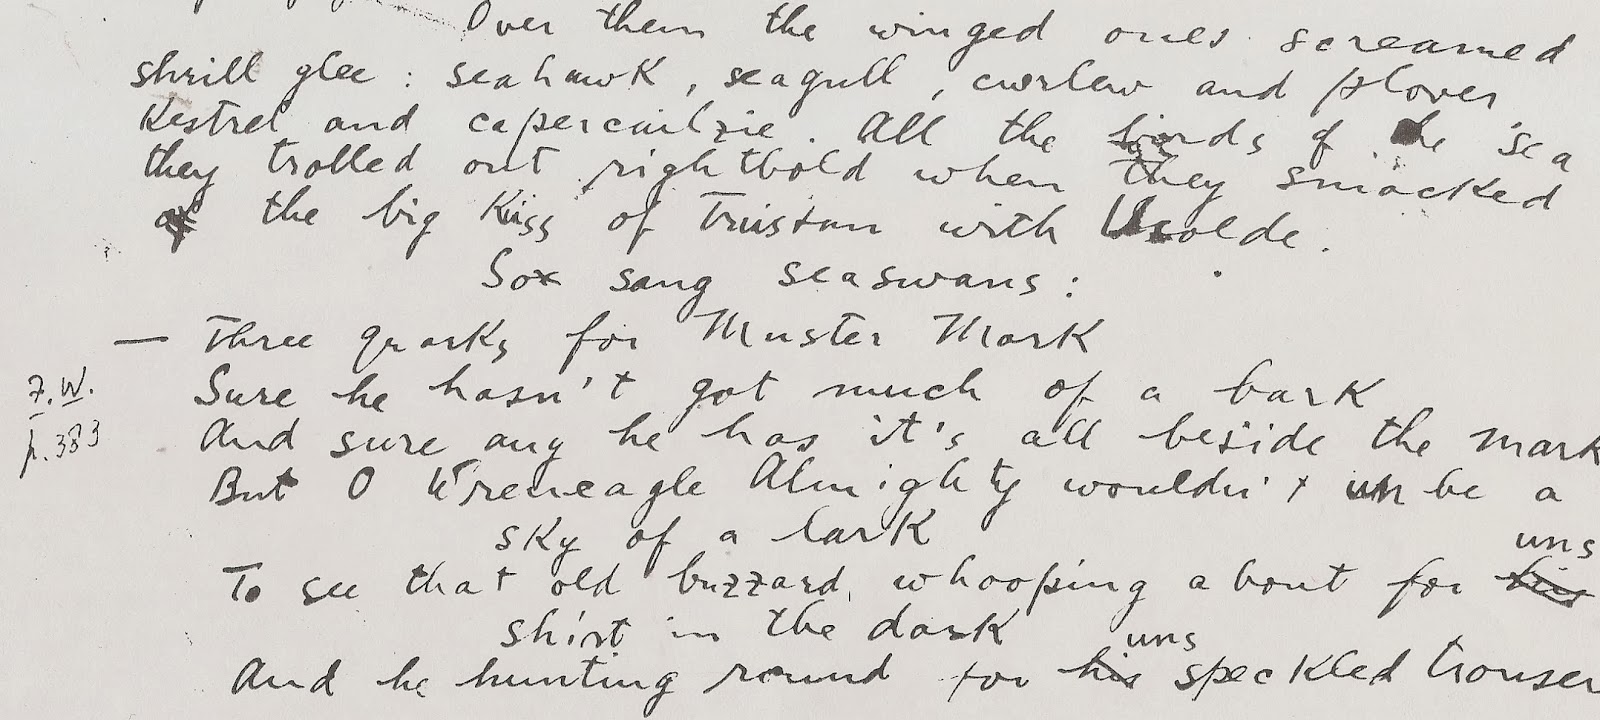 Over them the winged ones screamed
shrill glee: seahawk, seagull, curlew and plover
kestrel and capercailzie. All the birds of the sea
they trolled out rightbold when they smacked
the big kuss of Trustan with Usolde.
So sang seaswans:
— Three quarks for Muster Mark
F.W. Sure he hasn't got much of a bark
p. 383 And sure any he has it's all beside the mark
But O Wreneagle Almighty wouldn't un be a
sky of a lark
uns
To see that old buzzard whooping about for his
shirt in the dark
uns
And he hunting round for his speckled trouser